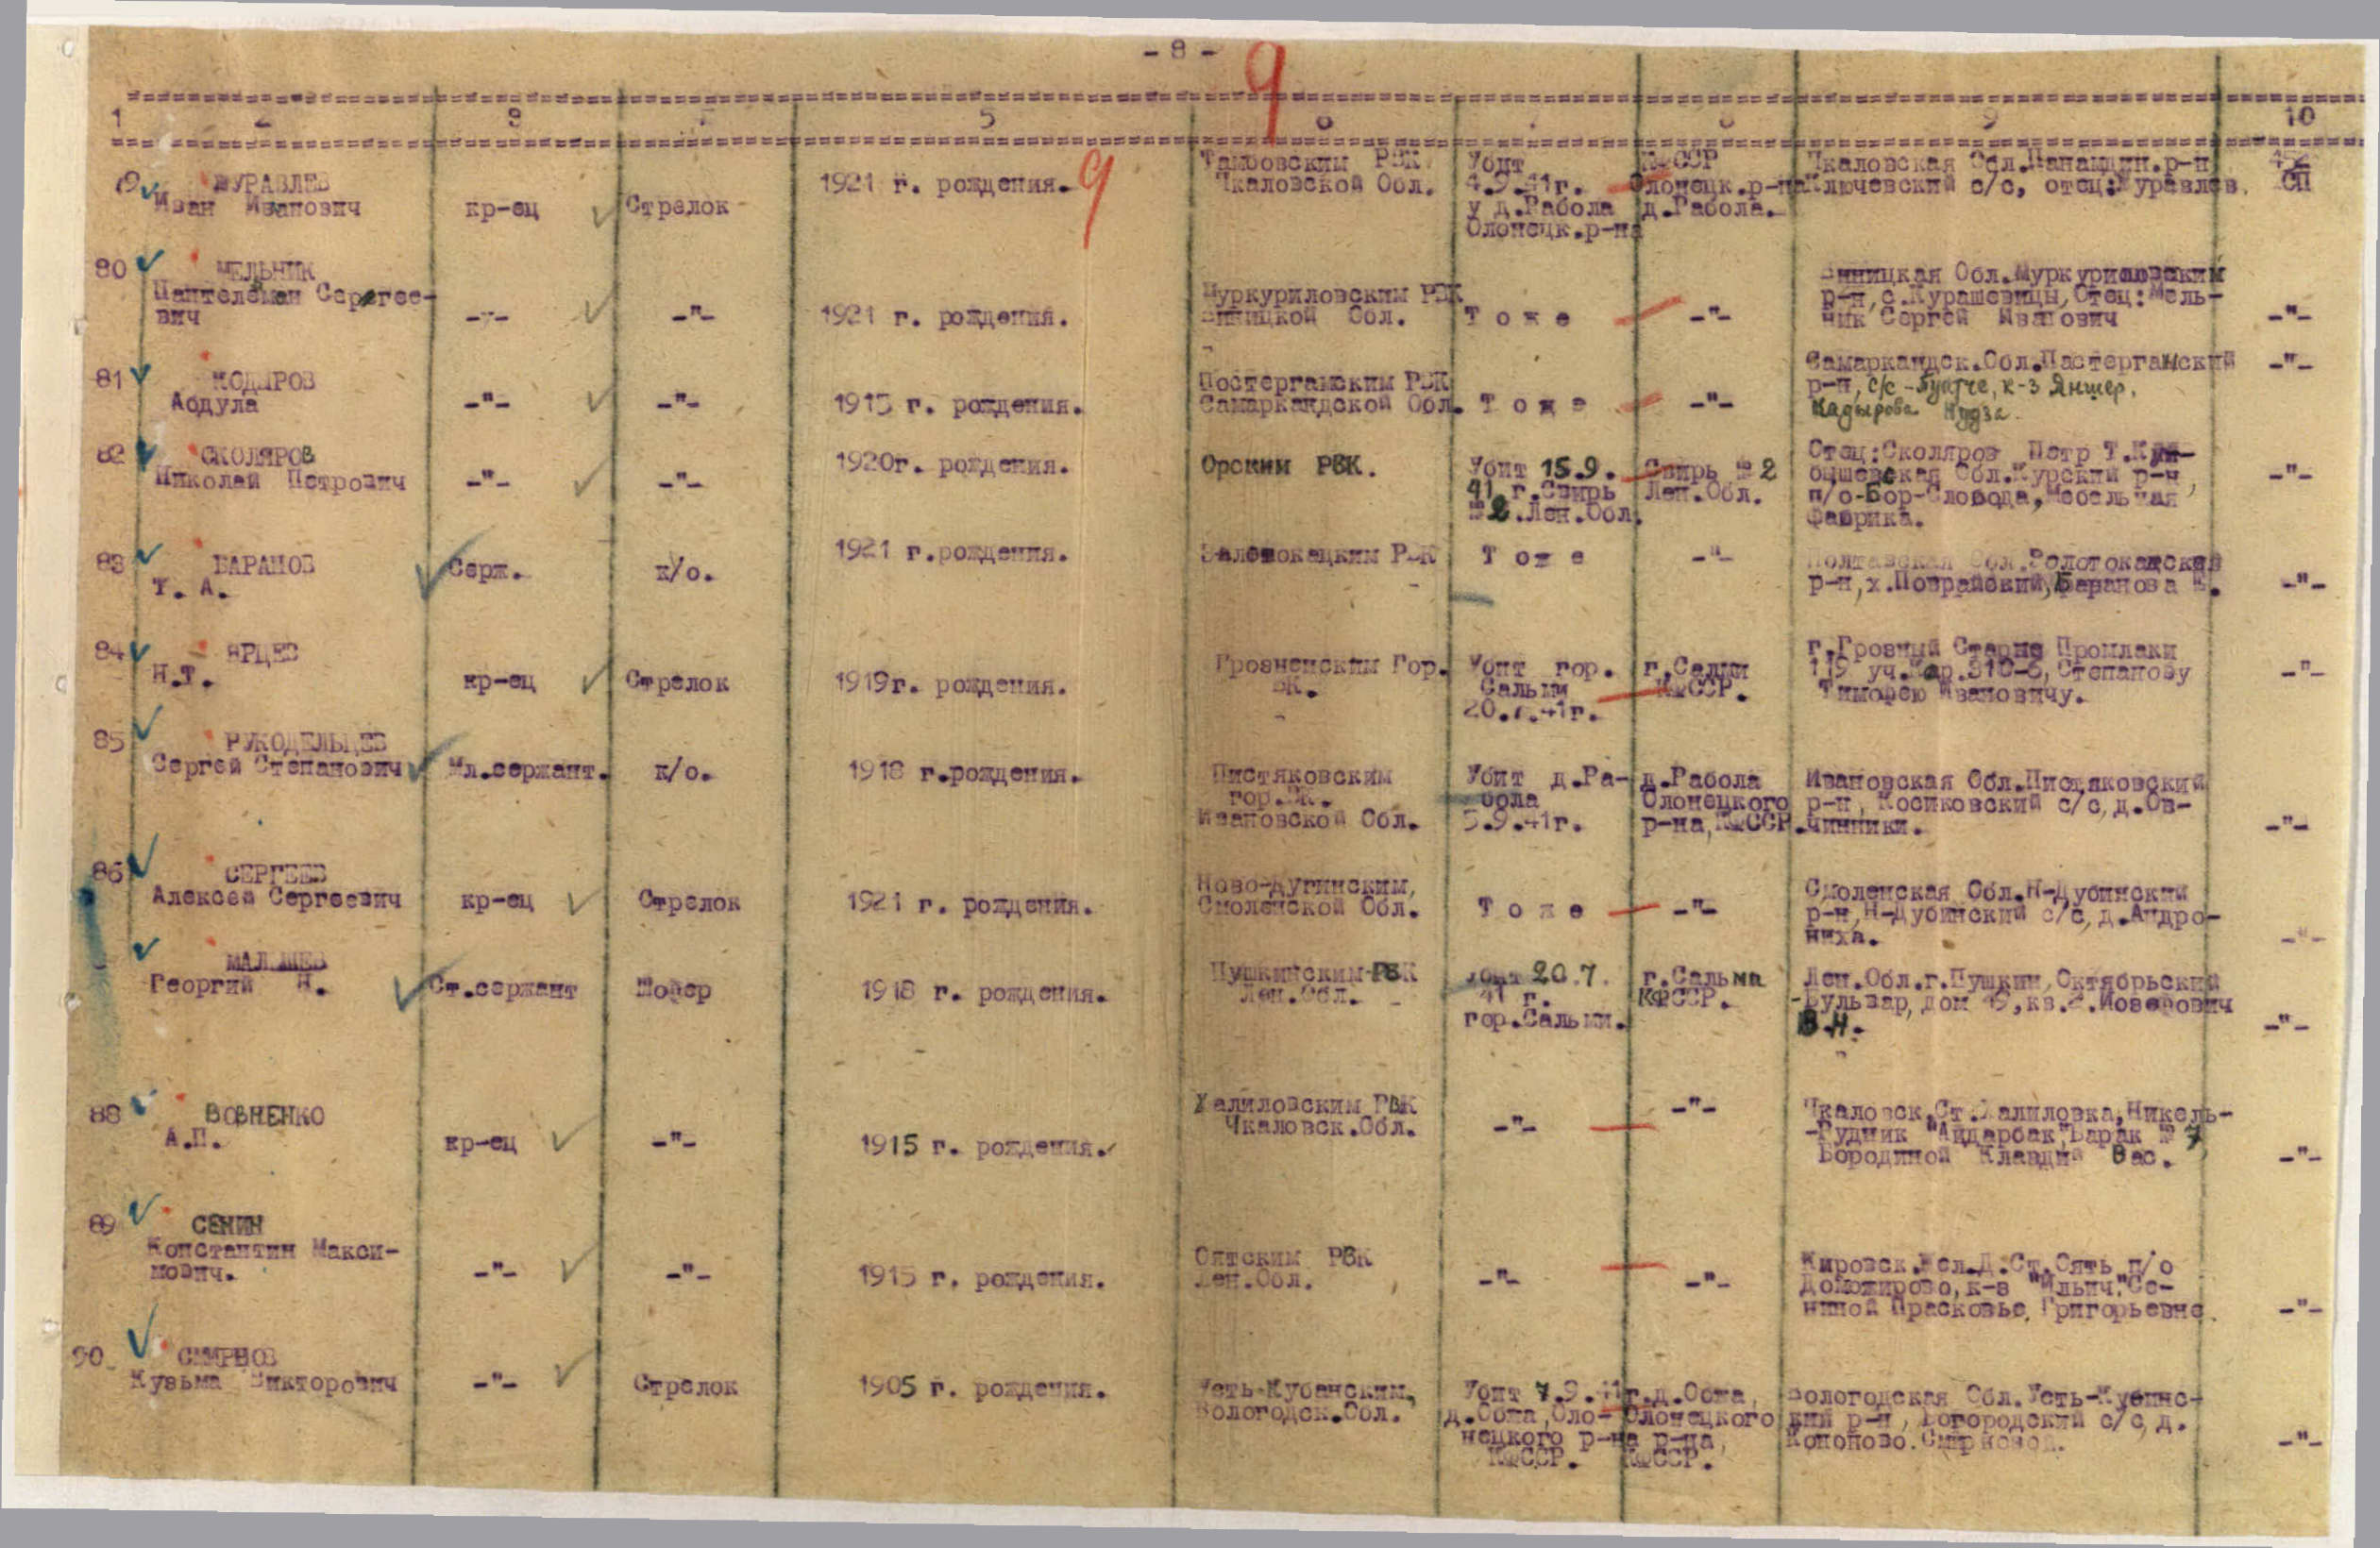 - 8 -
9
1 2 3 4 5 6 7 8 9 10
79 ЖУРАВЛЕВ
Иван Иванович
кр-ец
Стрелок
1921 г. рождения.
9
Тамбовским РВК
Чкаловской Обл.
Убит
4.9.41г.
у д.Рабола
Олонецк.р-на
КФССР
Олонецк.р-на
д.Рабола.
Чкаловская Обл. р-н
Ключевский с/с, отец:Журавлев.
СП
80 МЕЛЬНИК
Пантелеман Сергее-
вич
-"-
-"-
1921 г. рождения.
Муркуриловским РВК
Винницкой Обл.
Т о ж е
-"-
Винницкая Обл.
р-н, с.Курашевицы, Отец: Мель-
ник Сергей Иванович
-"-
81 КОДЫРОВ
Абдула
-"-
-"-
1915 г. рождения.
Постергамским РВК
Самаркандской Обл.
Т о ж е
-"-
Самаркандск.Обл.Пастерганский
р-н, с/с к-з Яншер.
Кадырова
-"-
82 СКОЛЯРОВ
Николай Петрович
-"-
-"-
1920г. рождения.
Орским РВК.
Убит 15.9.
41 г.Свирь
№2.Лен.Обл.
Свирь №2
Лен.Обл.
Отец:Сколяров Петр Т.Куй-
бышевская Обл.Курский р-н,
п/о-Бор-Слобода, Мебельная
Фабрика.
-"-
83 БАРАНОВ
Т. А.
Серж.
к/о.
1921 г.рождения.
РВК
Т о ж е
-"-
Полтавская Обл.
р-н, х. Баранова Е.
-"-
84 ЯРЦЕВ
Н.Т.
кр-ец
Стрелок
1919г. рождения.
Грозненским Гор.
ВК.
Убит гор.
Сальми
20.7.41г.
г.Салми
КФССР.
г.Грозный Старые Промлаки
119 уч. Степанову
Тимофею Ивановичу.
-"-
85 РУКОДЕЛЬЦЕВ
Сергей Степанович
Мл.сержант.
к/о.
1918 г.рождения.
Пистяковским
гор.ВК.
Ивановской Обл.
Убит д.Ра-
бола
5.9.41г.
д.Рабола
Олонецкого
р-на, КФССР.
Ивановская Обл.Пистяковский
р-н, Косиковский с/с, д.Ов-
чинники.
-"-
86 СЕРГЕЕВ
Алексей Сергеевич
кр-ец
Стрелок
1921 г. рождения.
Ново-Дугинским,
Смоленской Обл.
Т о ж е
-"-
Смоленская Обл.Н-Дубинский
р-н, Н-Дубинский с/с, д.Андро-
ниха.
-"-
МАЛЫШЕВ
Георгий Н.
Ст.сержант
Шофер
1918 г. рождения.
Пушкинским РВК
Лен.Обл.
Убит 20.7.
41 г.
гор.Сальми.
г.Сальма
КФССР.
Лен.Обл.г.Пушкин, Октябрьский
-Бульвар, дом 19, кв.2.
В.Н.
-"-
88 ВОВНЕНКО
А.П.
кр-ец
-"-
1915 г. рождения.
Халиловским РВК
Чкаловск.Обл.
-"-
-"-
Чкаловск.Ст.Халиловка, Никель-
-Рудник "Айдарбак", Барак № 7
Бородиной Клавдии Вас.
-"-
89 СЕНИН
Константин Макси-
мович.
-"-
-"-
1915 г. рождения.
Оятским РВК
Лен.Обл.
-"-
-"-
Кировск.Жел.Д.Ст.Оять п/о
Доможирово, к-з "Ильич".Се-
ниной Прасковье, Григорьевне.
-"-
90 СМИРНОВ
Кузьма Викторович
-"-
Стрелок
1905 г. рождения.
Усть-Кубанским,
Вологодск.Обл.
Убит 7.9.41г.
д.Обжа, Оло-
нецкого р-на
КФССР.
д.Обжа,
Олонецкого
р-на,
КФССР.
Вологодская Обл.Усть-Кубинс-
кий р-н, Богородский с/с, д.
Кононово.Смирновой.
-"-